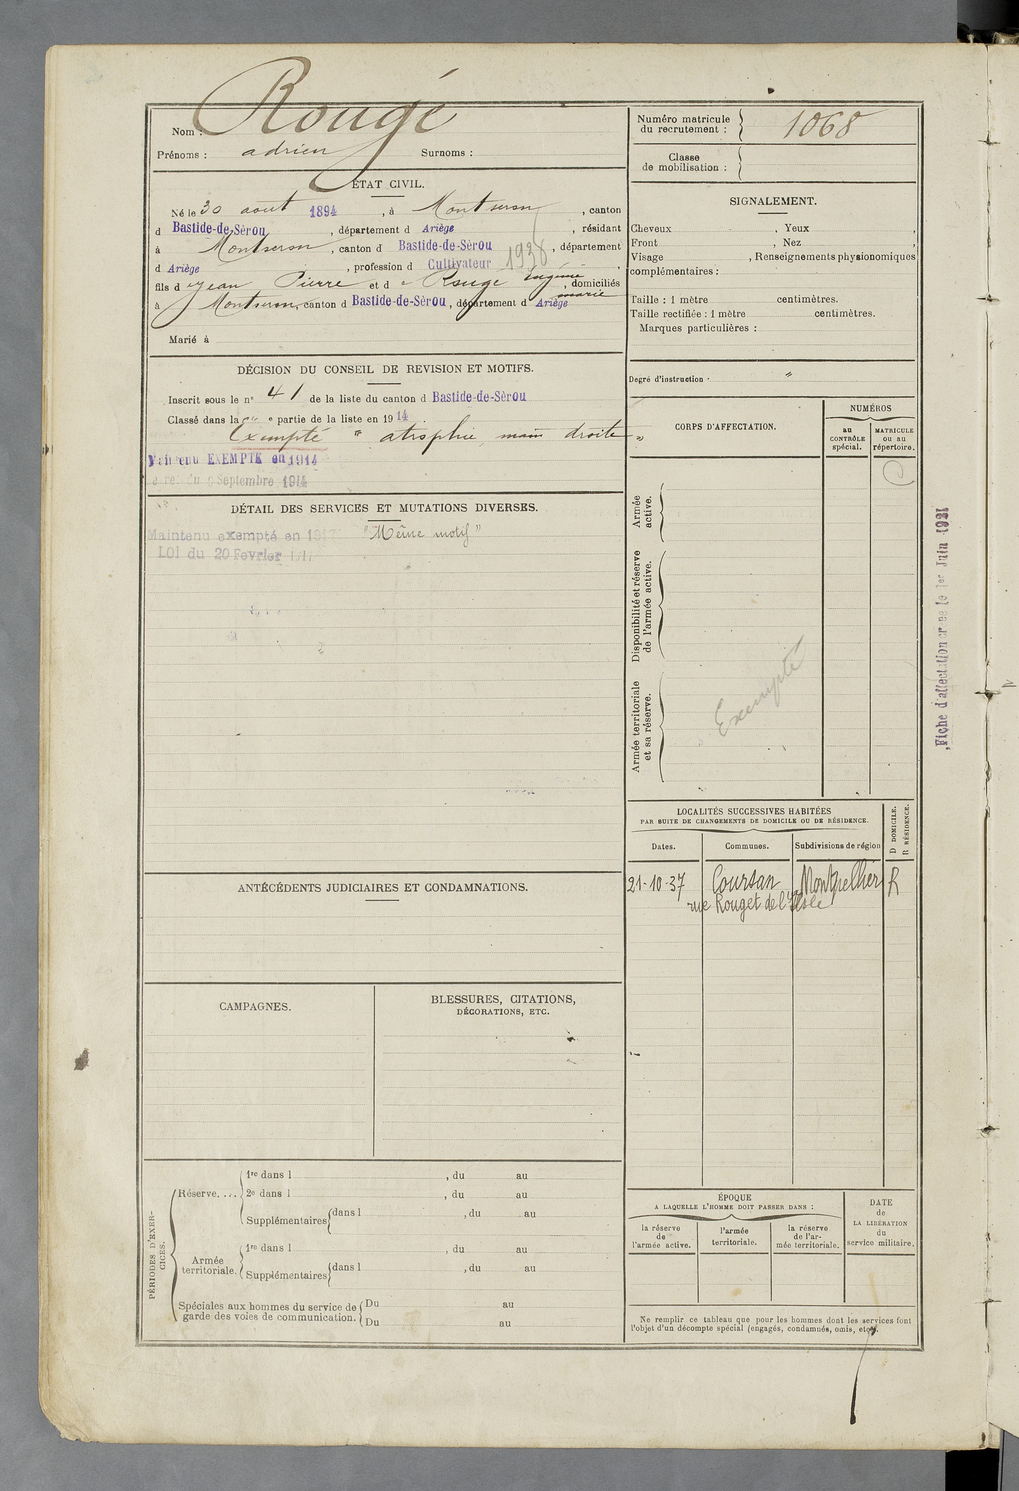 Rougé
Nom :
Prénoms : adrien Surnoms :
Numéro matricule
du recrutement : 1068
Classe
de mobilisation :
ÉTAT CIVIL.
Né le 30 août 1894, à Montseron, canton
d Bastide-de-Sèrou, département d Ariège, résidant
à Montseron, canton d Bastide-de-Sèrou, département
d Ariège, profession d Cultivateur 1938,
fils d e Jean Pierre et d e Rouge Eugénie marie, domiciliés
à Montseron, canton d Bastide-de-Sèrou, département d Ariège
Marié à
SIGNALEMENT.
Cheveux , Yeux ,
Front , Nez ,
Visage , Renseignements physionomiques
complémentaires :
Taille : 1 mètre centimètres.
Taille rectifiée : 1 mètre centimètres.
Marques particulières :
Degré d'instruction . "
DÉCISION DU CONSEIL DE REVISION ET MOTIFS.
Inscrit sous le n° 41 de la liste du canton d Bastide-de-Sèrou
Classé dans la " partie de la liste en 1914.
Exempté " atrophie, main droite "
Maintenu EXEMPTÉ en 1914
Septembre 1914
CORPS D'AFFECTATION.
NUMÉROS
au
CONTRÔLE
spécial.
MATRICULE
ou au
répertoire.
Armée
active.
Disponibilité et réserve
de l'armée active.
Armée territoriale
et sa réserve.
Exempté
DÉTAIL DES SERVICES ET MUTATIONS DIVERSES.
Maintenu exempté en 1917 "Même motif"
LOI du 20 Février 1917
Fiche d'affectation créée le 1er Juin 1921
LOCALITÉS SUCCESSIVES HABITÉES
PAR SUITE DE CHANGEMENTS DE DOMICILE OU DE RÉSIDENCE.
Dates.
Communes.
Subdivisions de région
D DOMICILE.
R RÉSIDENCE.
21-10-37 Coursan Montpellier R
rue Rouget de l'Isle
ANTÉCÉDENTS JUDICIAIRES ET CONDAMNATIONS.
CAMPAGNES.
BLESSURES, CITATIONS,
DÉCORATIONS, ETC.
PÉRIODES D'EXER-
CICES.
Réserve. ...
1re dans l , du au
2e dans l , du au
Supplémentaires dans l , du au
Armée
territoriale.
1re dans l , du au
Supplémentaires dans l , du au
Spéciales aux hommes du service de
garde des voies de communication.
Du au
Du au
ÉPOQUE
A LAQUELLE L'HOMME DOIT PASSER DANS :
la réserve
de
l'armée active.
l'armée
territoriale.
la réserve
de l'ar-
mée territoriale.
DATE
de
LA LIBÉRATION
du
service militaire.
Ne remplir ce tableau que pour les hommes dont les services font
l'objet d'un décompte spécial (engagés, condamnés, omis, etc.).